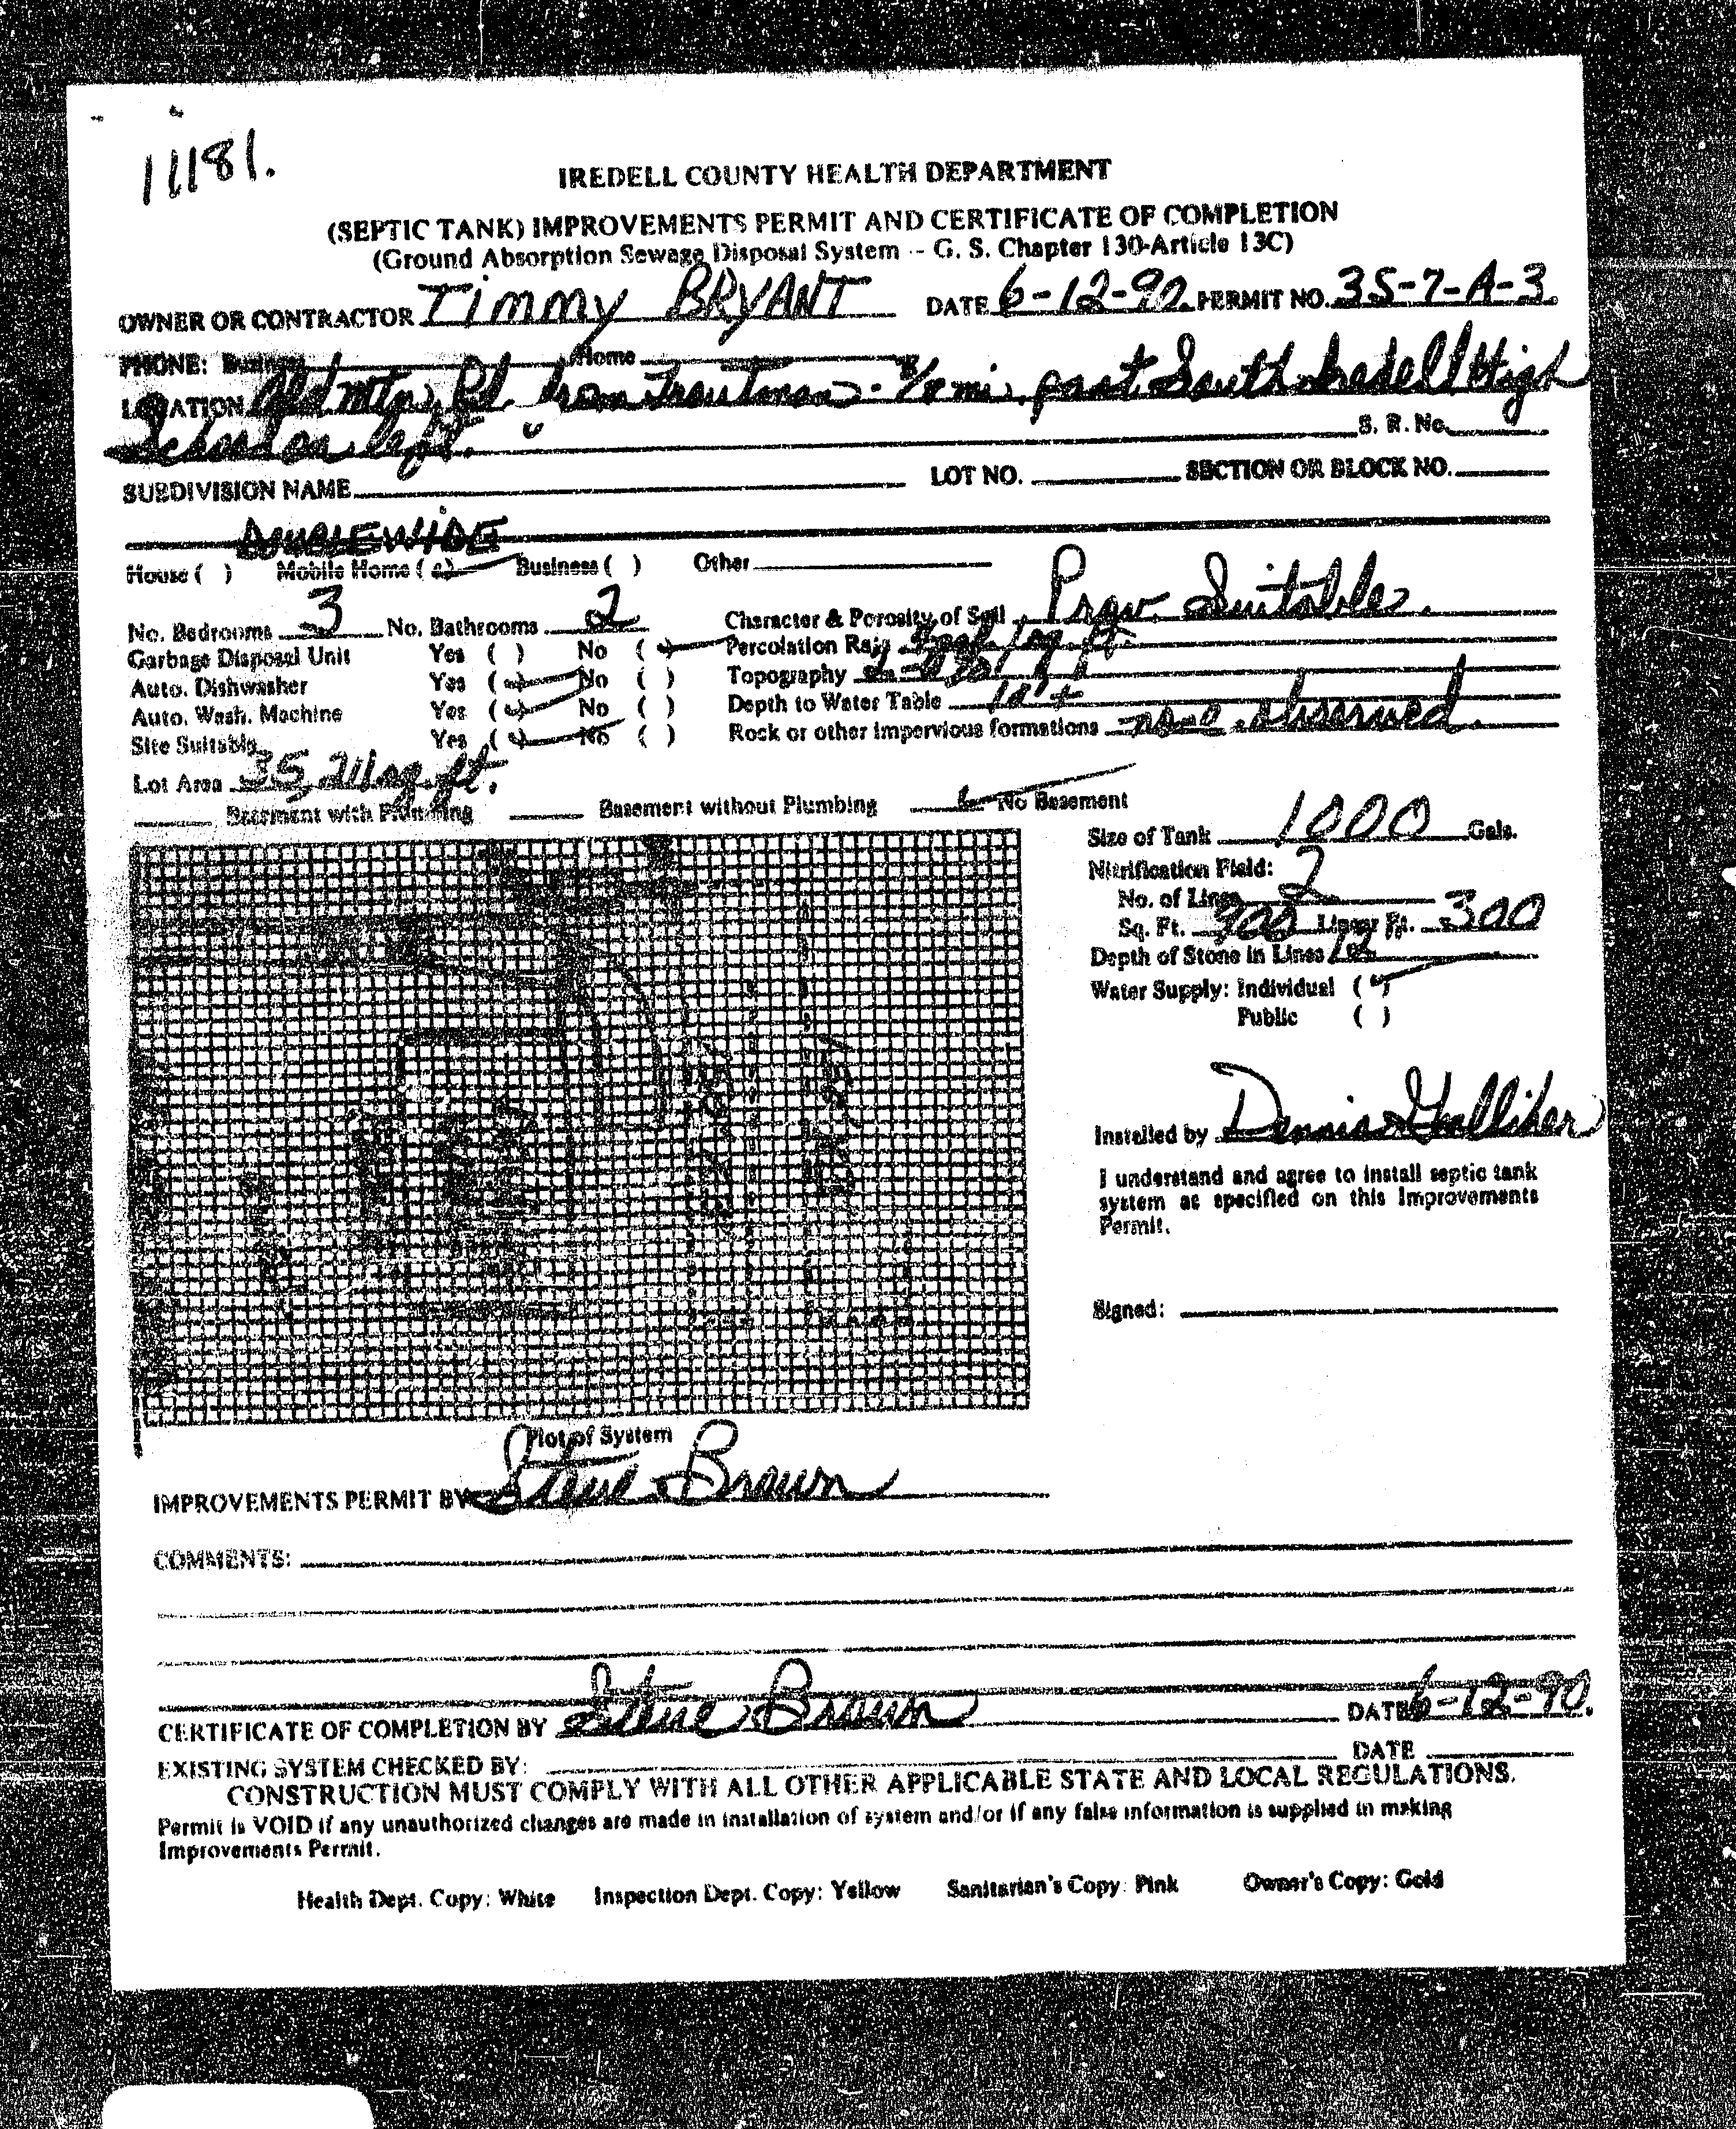 11181.
IREDELL COUNTY HEALTH DEPARTMENT
(SEPTIC TANK) IMPROVEMENTS PERMIT AND CERTIFICATE OF COMPLETION
(Ground Absorption Sewage Disposal System -- G. S. Chapter 130-Article 13C)
OWNER OR CONTRACTOR Timmy BRYANT DATE 6-12-90. PERMIT NO. 35-7-A-3.
PHONE: Business Home
LOCATION Old Mtn. Rd. from Troutman - mi. past South Iredell High
School on left. S. R. No.
SUBDIVISION NAME LOT NO. SECTION OR BLOCK NO.
DOUBLEWIDE
House ( ) Mobile Home (✓) Business ( ) Other
No. Bedrooms 3 No. Bathrooms 2 Character & Porosity of Soil Prov. Suitable.
Garbage Disposal Unit Yes ( ) No (✓) Percolation Rate
Auto. Dishwasher Yes (✓) No ( ) Topography
Auto. Wash. Machine Yes (✓) No ( ) Depth to Water Table
Site Suitable Yes (✓) No ( ) Rock or other impervious formations none observed.
Lot Area 35,211 sq. ft.
Basement with Plumbing Basement without Plumbing ✓ No Basement
Size of Tank 1000 Gals.
Nitrification Field:
No. of Lines 2
Sq. Ft. 900 Linear Ft. 300
Depth of Stone in Lines 12
Water Supply: Individual (✓)
Public ( )
Installed by Dennis Galliher
I understand and agree to install septic tank
system as specified on this Improvements
Permit.
Signed:
Plot of System
IMPROVEMENTS PERMIT BY Steve Brown
COMMENTS:
CERTIFICATE OF COMPLETION BY Steve Brown DATE 6-12-90.
EXISTING SYSTEM CHECKED BY: DATE
CONSTRUCTION MUST COMPLY WITH ALL OTHER APPLICABLE STATE AND LOCAL REGULATIONS.
Permit is VOID if any unauthorized changes are made in installation of system and/or if any false information is supplied in making
Improvements Permit.
Health Dept. Copy: White Inspection Dept. Copy: Yellow Sanitarian's Copy: Pink Owner's Copy: Gold